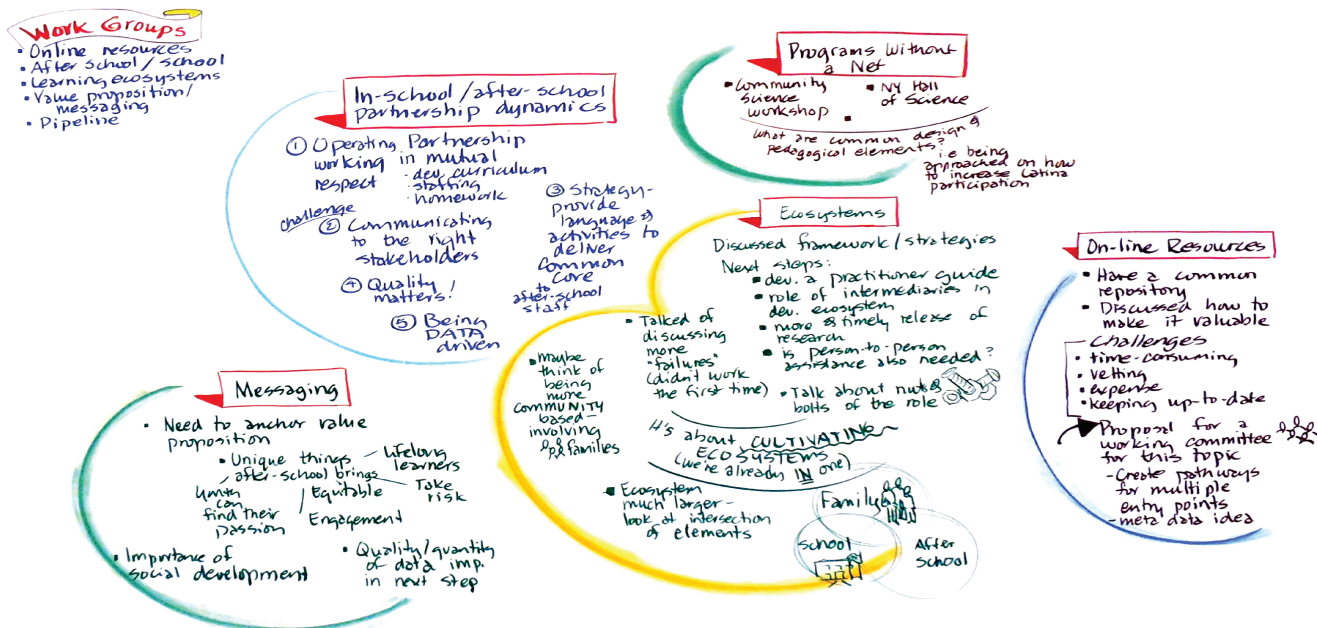 Work Groups
• Online resources
• After school / school
• Learning ecosystems
• Value proposition/
messaging
• Pipeline
In-school/after-school
partnership dynamics
① Operating Partnership
working in mutual
respect
· dev. curriculum
· staffing
· homework
challenge
② Communicating
to the right
stakeholders
③ Strategy-
provide
language &
activities to
deliver
Common
Core
to
after-school
staff
④ Quality
matters!
⑤ Being
DATA
driven
Programs Without
a Net
• Community
Science
workshop
• NY Hall
of Science
•
What are common design &
pedagogical elements?
i.e being
approached on how
to increase Latina
participation
Ecosystems
Discussed framework/strategies
Next steps:
• dev. a practitioner guide
• role of intermediaries in
dev. ecosystem
• more & timely release of
research
• is person-to-person
assistance also needed?
• Talk about nuts &
bolts of the role
• Talked of
discussing
more
"failures"
(didn't work
the first time)
• Maybe
think of
being
more
COMMUNITY
based-
involving
families
It's about CULTIVATING
ECOSYSTEMS
(we're already IN one)
• Ecosystem
much larger-
look at intersection
of elements
Family
School
After
School
On-line Resources
• Have a common
repository
• Discussed how to
make it valuable
Challenges
• time-consuming
• vetting
• expense
• keeping up-to-date
Proposal for a
working committee
for this topic
- Create pathways
for multiple
entry points
- meta data idea
Messaging
• Need to anchor value
proposition
• Unique things
after-school brings
Lifelong
learners
Take
risk
Equitable
Engagement
Youth
can
find their
passion
• Importance of
social development
• Quality/quantity
of data imp.
in next step